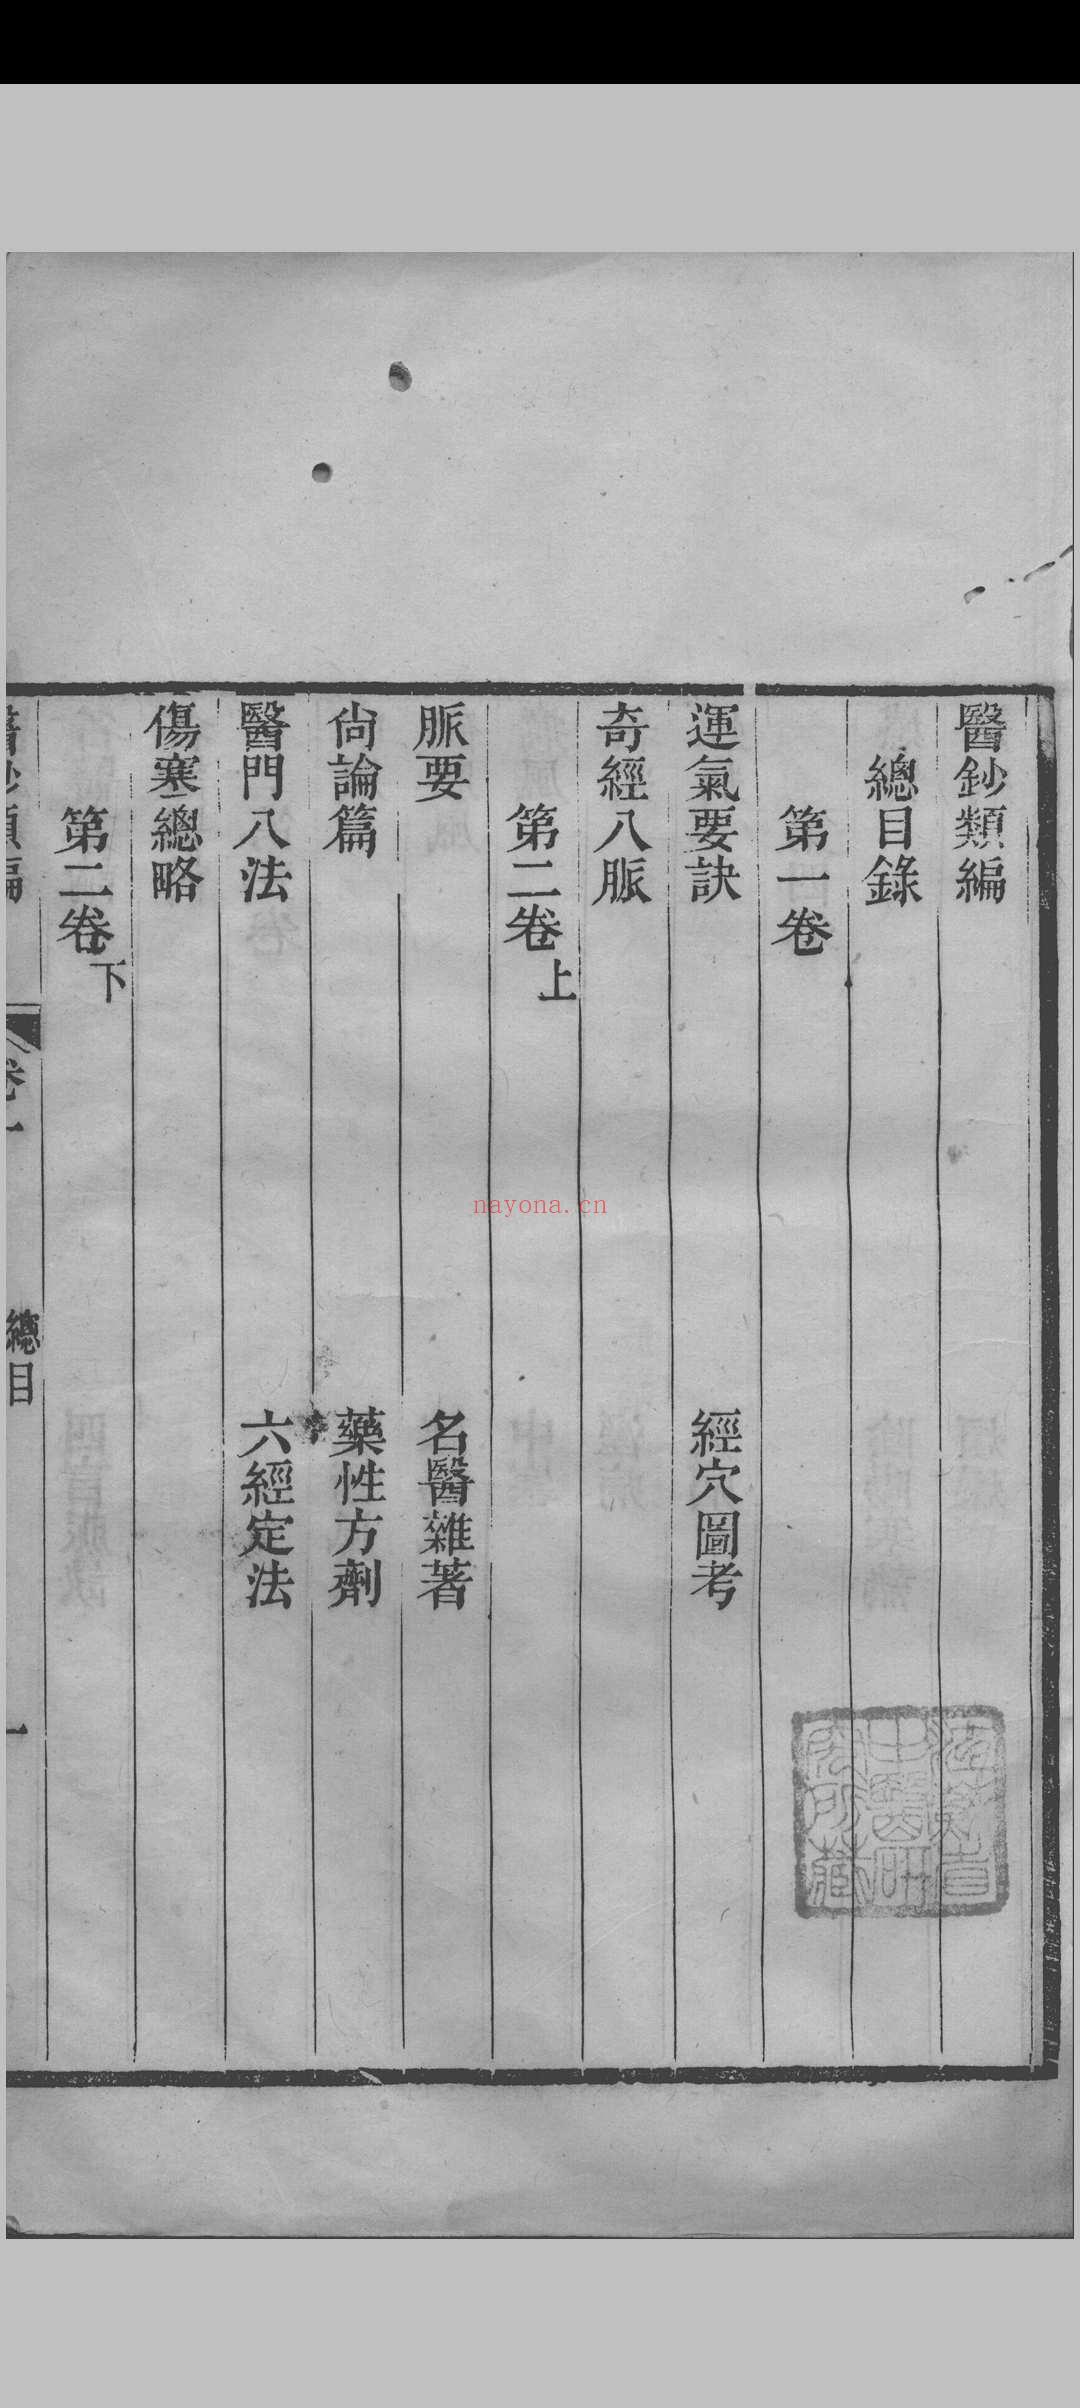 醫鈔類編
總目錄
第一卷
運氣要訣 經穴圖考
奇經八脈
第二卷上
脈要 名醫雜著
尙論篇 藥性方劑
醫門八法 六經定法
傷寒總略
第二卷下
醫鈔類編 卷一 總目 一
中醫研
院所藏
nayona.cn